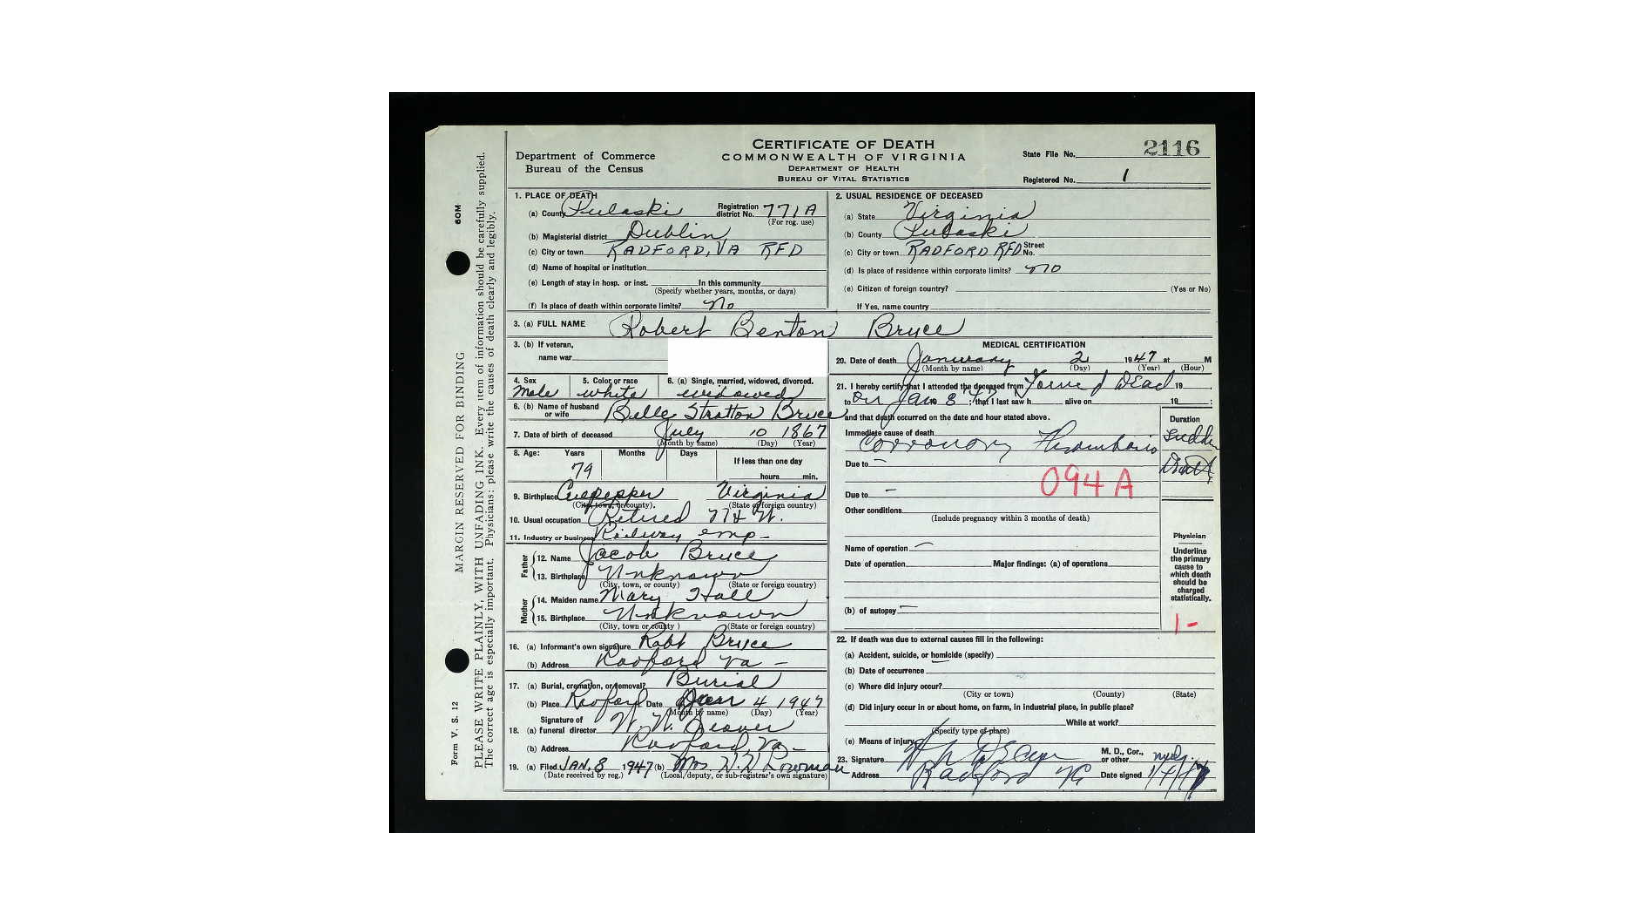 CERTIFICATE OF DEATH
COMMONWEALTH OF VIRGINIA
DEPARTMENT OF HEALTH
BUREAU OF VITAL STATISTICS
Department of Commerce
Bureau of the Census
State File No. 2116
Registered No. 1
MARGIN RESERVED FOR BINDING
PLEASE WRITE PLAINLY, WITH UNFADING INK. Every item of information should be carefully supplied.
The correct age is especially important. Physicians: please write the causes of death clearly and legibly.
Form V. S. 12
60M
1. PLACE OF DEATH
(a) County Pulaski Registration district No. 771A
(For reg. use)
(b) Magisterial district Dublin
(c) City or town RADFORD, VA RFD
(d) Name of hospital or institution
(e) Length of stay in hosp. or inst. In this community
(Specify whether years, months, or days)
(f) Is place of death within corporate limits? No
2. USUAL RESIDENCE OF DECEASED
(a) State Virginia
(b) County Pulaski
(c) City or town RADFORD RFD Street No.
(d) Is place of residence within corporate limits? no
(e) Citizen of foreign country? (Yes or No)
If Yes, name country
3. (a) FULL NAME Robert Benton Bruce
3. (b) If veteran,
name war
4. Sex Male 5. Color or race white 6. (a) Single, married, widowed, divorced. widowed
6. (b) Name of husband or wife Belle Stratton Bruce
7. Date of birth of deceased July 10 1867
(Month by name) (Day) (Year)
8. Age: Years 79 Months Days If less than one day
hours min.
9. Birthplace Culpepper Virginia
(City, town, or county). (State or foreign country)
10. Usual occupation Retired N & W.
11. Industry or business Railway emp-
Father
12. Name Jacob Bruce
13. Birthplace Unknown
(City, town, or county) (State or foreign country)
Mother
14. Maiden name Mary Hall
15. Birthplace Unknown
(City, town or county) (State or foreign country)
16. (a) Informant's own signature Robt Bruce
(b) Address Radford Va -
17. (a) Burial, cremation, or removal? Burial
(b) Place Radford Date Jan 4 1947
(Month by name) (Day) (Year)
18. (a) Signature of funeral director
(b) Address Radford, Va -
19. (a) Filed JAN. 8 1947 (b) Mrs
(Date received by reg.) (Local, deputy, or sub-registrar's own signature)
MEDICAL CERTIFICATION
20. Date of death January 2 1947 at M
(Month by name) (Day) (Year) (Hour)
21. I hereby certify that I attended the deceased from Found Dead 19
to on Jan ; that I last saw h alive on 19 ;
and that death occurred on the date and hour stated above.
Duration
Immediate cause of death
Death
Due to -
094A
Due to -
Other conditions
(Include pregnancy within 3 months of death)
Name of operation -
Date of operation Major findings: (a) of operations
(b) of autopsy -
Physician
Underline the primary cause to which death should be charged statistically.
1-
22. If death was due to external causes fill in the following:
(a) Accident, suicide, or homicide (specify)
(b) Date of occurrence
(c) Where did injury occur?
(City or town) (County) (State)
(d) Did injury occur in or about home, on farm, in industrial place, in public place?
While at work?
(Specify type of place)
(e) Means of injury
23. Signature M. D., Cor., or other
Address Radford Date signed